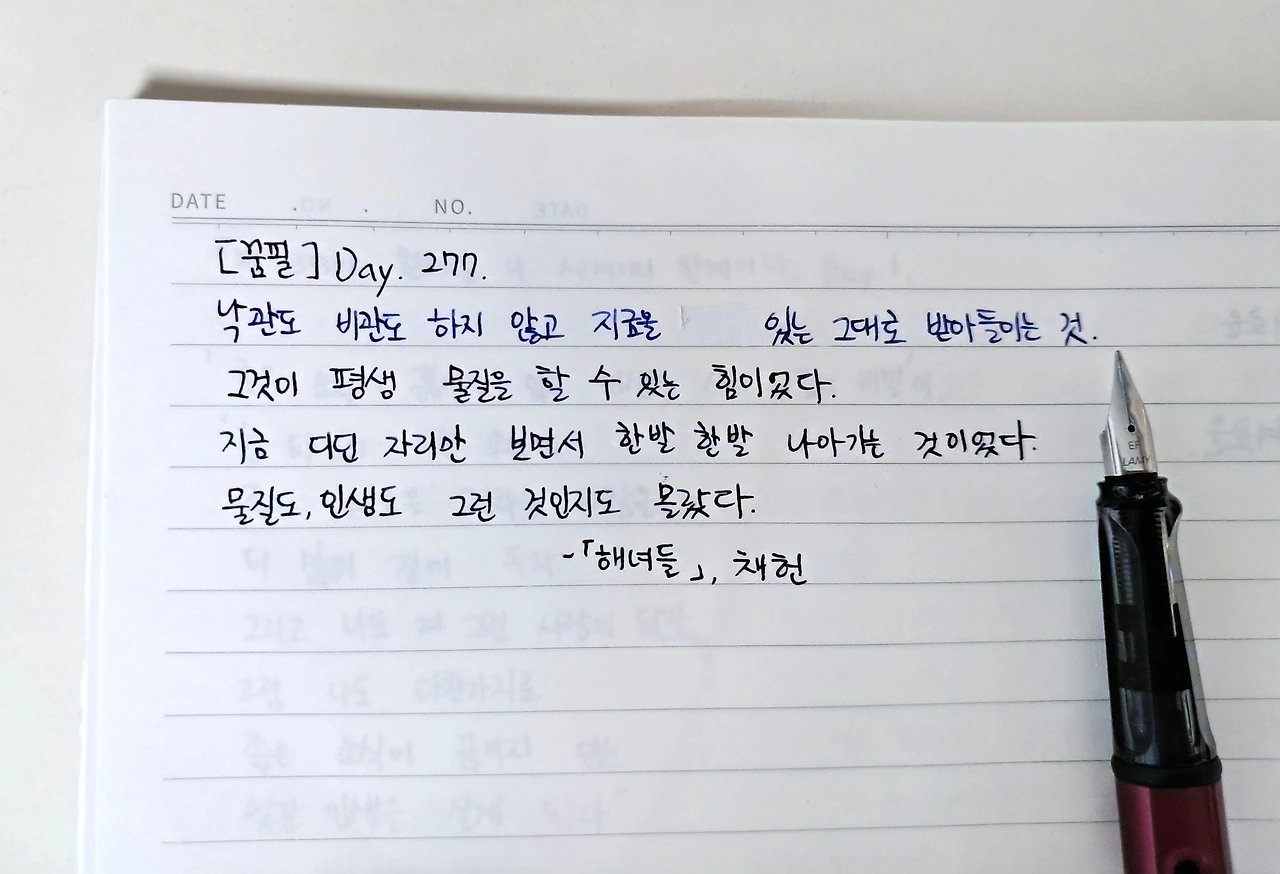 DATE . . NO.
[꿈필] Day. 277.
낙관도 비관도 하지 않고 지금을 있는 그대로 받아들이는 것.
그것이 평생 물질을 할 수 있는 힘이었다.
지금 디딘 자리만 보면서 한발 한발 나아가는 것이었다.
물질도, 인생도 그런 것인지도 몰랐다.
-「해녀들」, 채헌
EF
LAMY